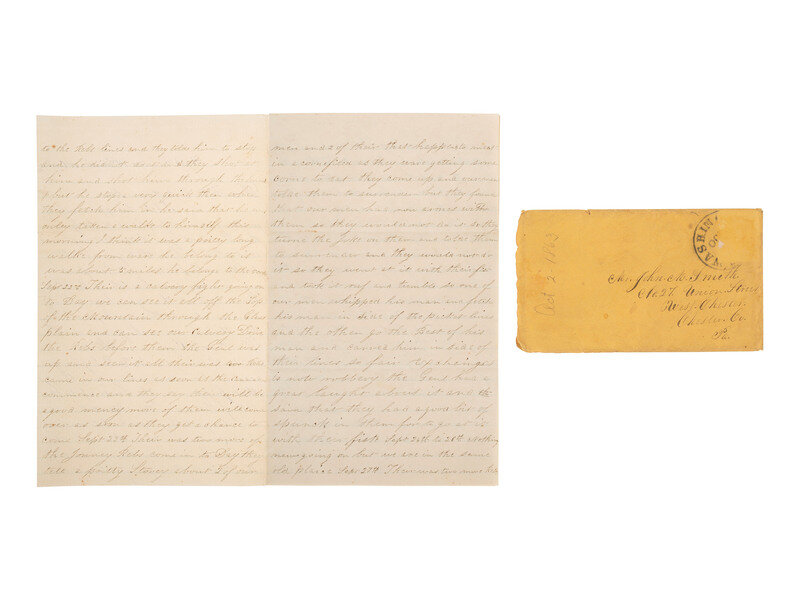 to the Rebs lines and they told him to stop
and he did not do it and they shot at
him and shot him through the hand
but he stops very quick then when
they fetch him in he said that he
only taken a walk to himself this
morning I think it was a pritty long
walk from were he belong to it
was about 5 miles he belong to the
Sept 22d Their is a calvery fight going on
to Day we can see it all off the Top
of the mountain through the
plain and can see our Calvery Drive
the Rebs before them the Genl was
up and seen it all their was two Rebs
came in our lines as soon as the
commence and they say their will be
a good meney more of them will come
over as soon as they get a chance to
come Sept Their was two more of
the Jonney Rebs come in to Day they
tell a pritty Storey about 2 of our
men and 2 of their that happen to meet
in a cornfiled as they were getting some
corne to eat they come up and
tolde them to surender but they found
that our men has non armes with
them so they would not do it so they
turne the joke on them and tolde them
to surender and they would not do
it so they went at it with their fist
and took it ruf and tumble so one of
our men whipped his man and fetch
his man in side of the picket lines
and the other go the Best of his
man and carries him in side of
their lines so fair Exchainge
is note robbery the Genl has a
great laught about it and he
said that they had a good bit of
spunck in them for to go at it
with their fists Sept 24th to 26th Nothing
new going on but we are in the same
old plaice Sept 27th Their was two more Rebs
Oct 2 1863
WASHIN
Mr. John M. Smith
No 27 Union Street
West Chester
Chester Co.
Pa.